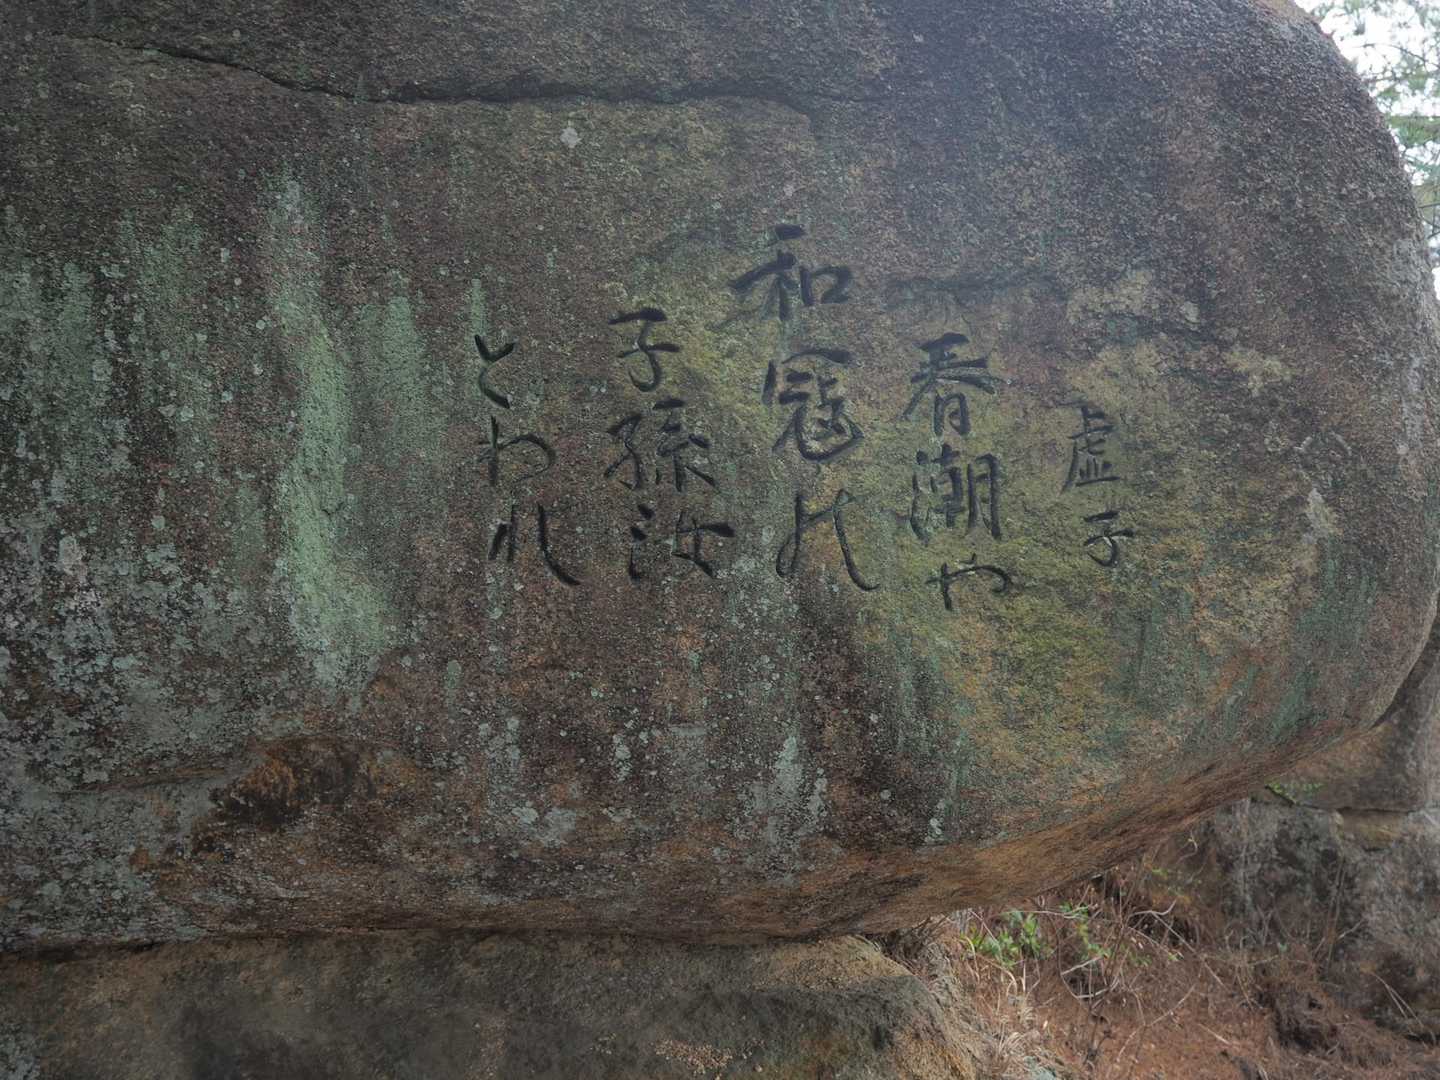 虚子
春潮や
和寇の
子孫汝
とわれ